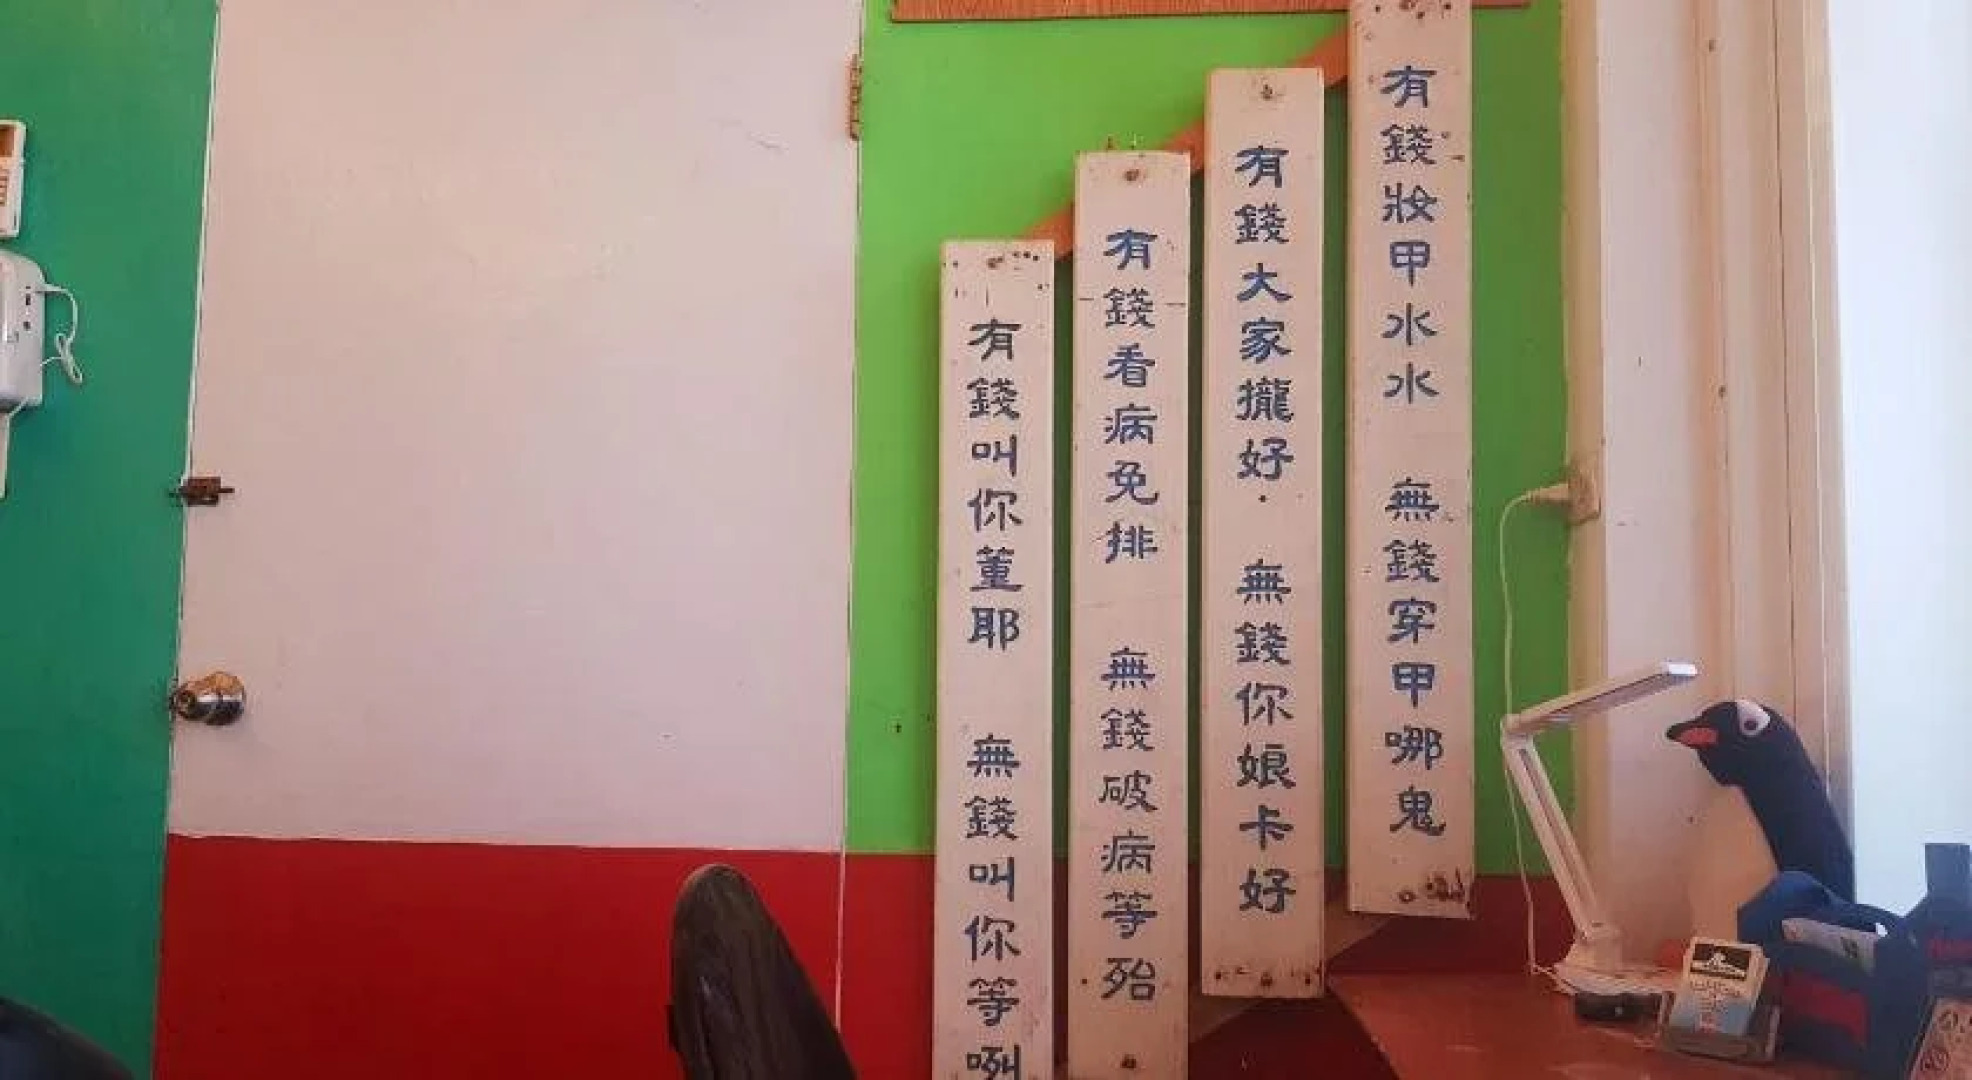 有錢妝甲水水 無錢穿甲哪鬼
有錢大家攏好 無錢你娘卡好
有錢看病免排 無錢破病等殆
有錢叫你董耶 無錢叫你等咧